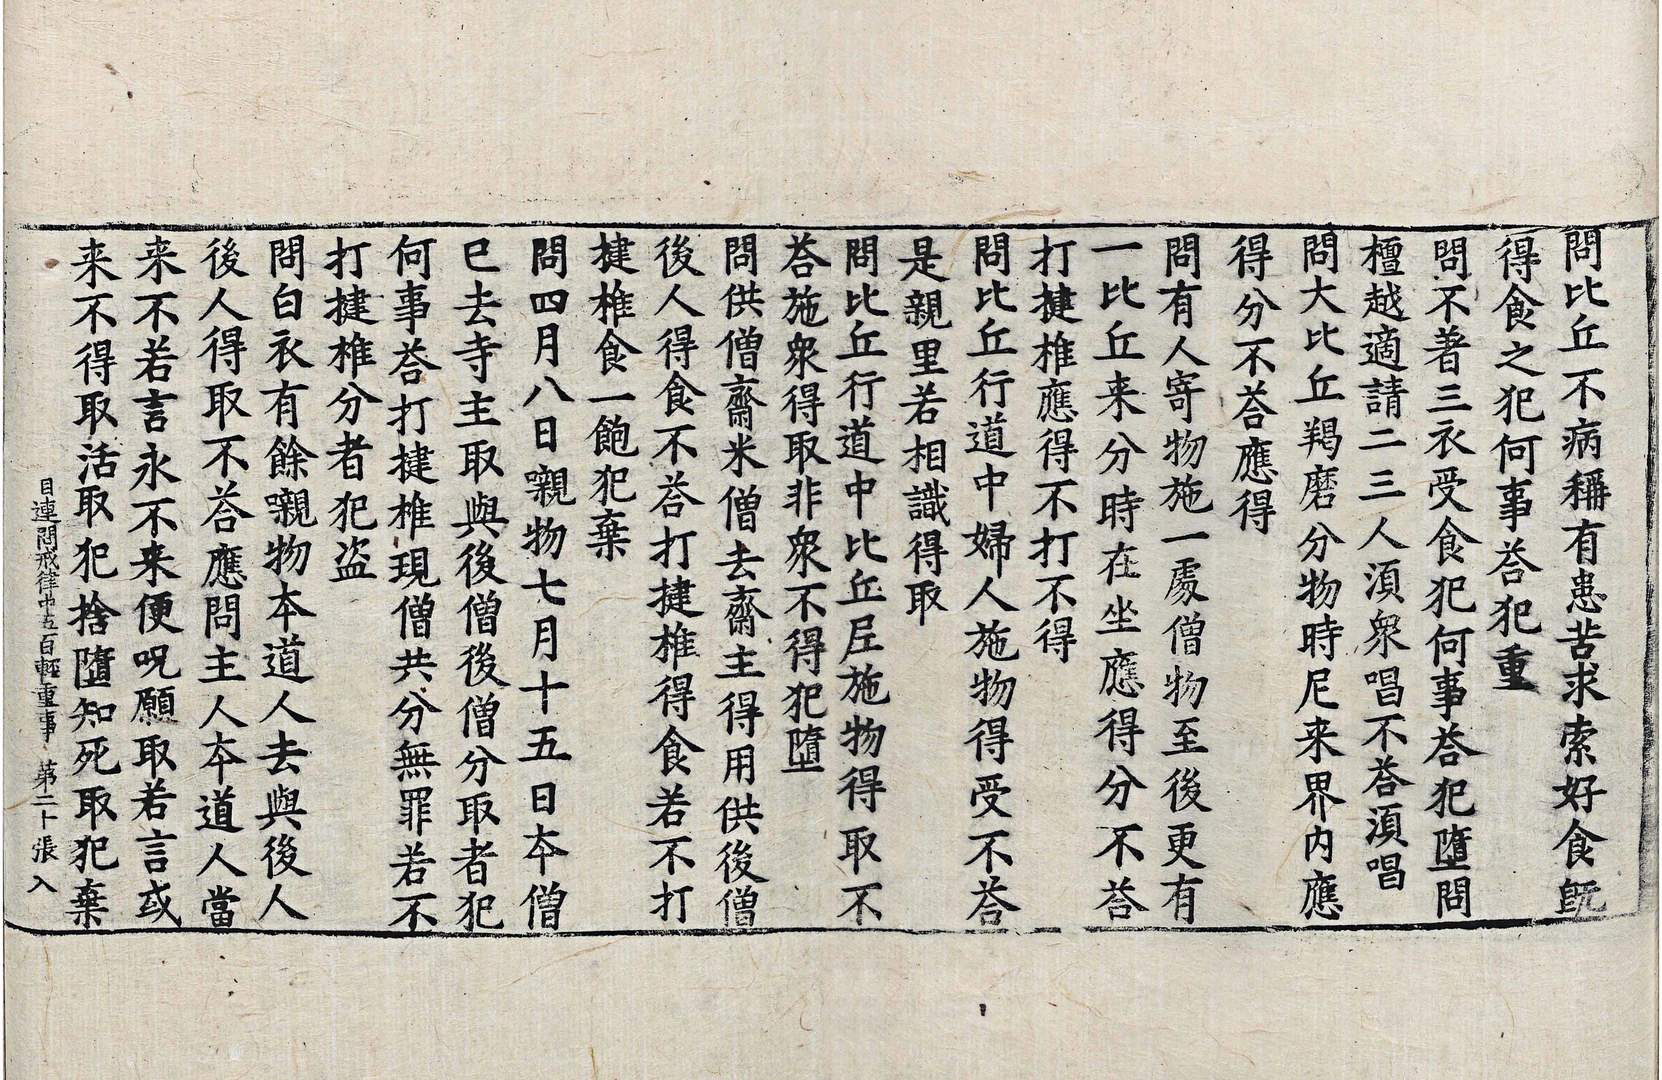 問比丘不病稱有患苦求索好食旣
得食之犯何事荅犯重
問不著三衣受食犯何事荅犯墮問
檀越適請二三人湏衆唱不荅湏唱
問大比丘羯磨分物時尼来界内應
得分不荅應得
問有人寄物施一處僧物至後更有
一比丘来分時在坐應得分不荅
打揵椎應得不打不得
問比丘行道中婦人施物得受不荅
是親里若相識得取
問比丘行道中比丘尼施物得取不
荅施衆得取非衆不得犯墮
問供僧齋米僧去齋主得用供後僧
後人得食不荅打揵椎得食若不打
揵椎食一飽犯棄
問四月八日嚫物七月十五日本僧
已去寺主取與後僧後僧分取者犯
何事荅打揵椎現僧共分無罪若不
打揵椎分者犯盜
問白衣有餘嚫物本道人去與後人
後人得取不荅應問主人本道人當
来不若言永不来便呪願取若言或
来不得取活取犯捨墮知死取犯棄
目連問戒律中五百輕重事 第二十張 入